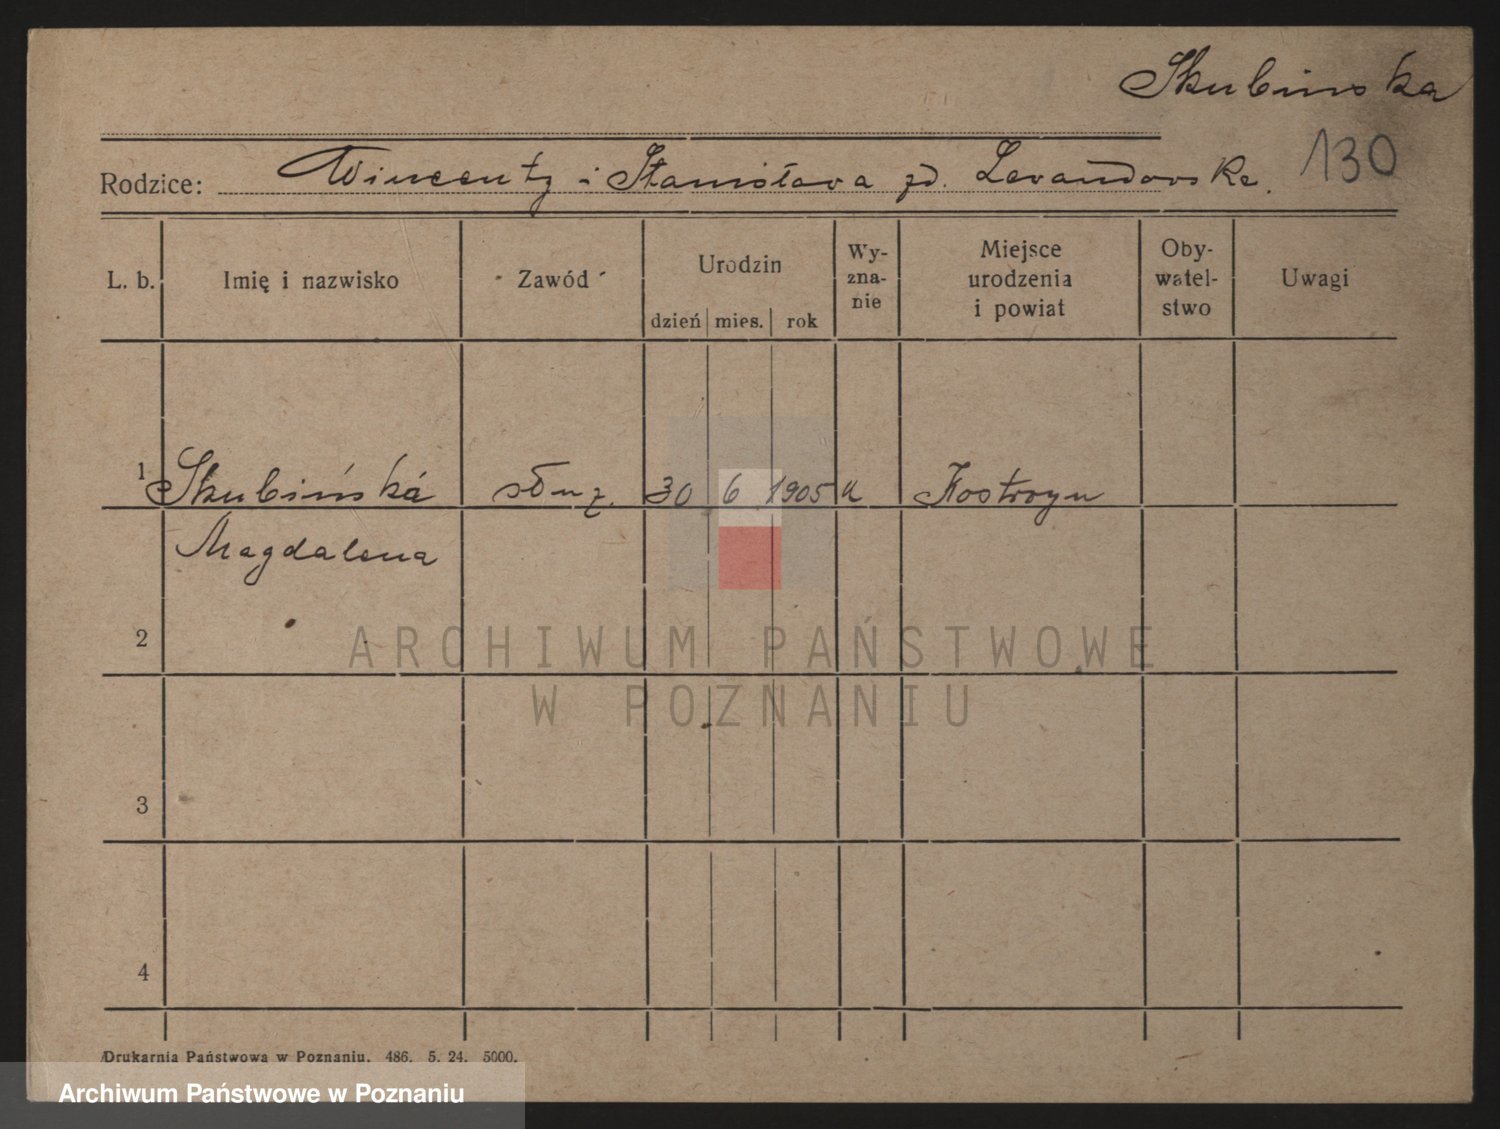 Skubinska
130
Rodzice: Wincenty i Stanisława zd. Levandovska.
L. b. Imię i nazwisko Zawód Urodzin Wy-zna-nie Miejsce urodzenia i powiat Oby-watel-stwo Uwagi
dzień mies. rok
1 Skubińska służ. 30 6 1905 k Kostrzyn
Magdalena
2
ARCHIWUM PAŃSTWOWE
W POZNANIU
3
4
Drukarnia Państwowa w Poznaniu. 486. 5. 24. 5000.
Archiwum Państwowe w Poznaniu